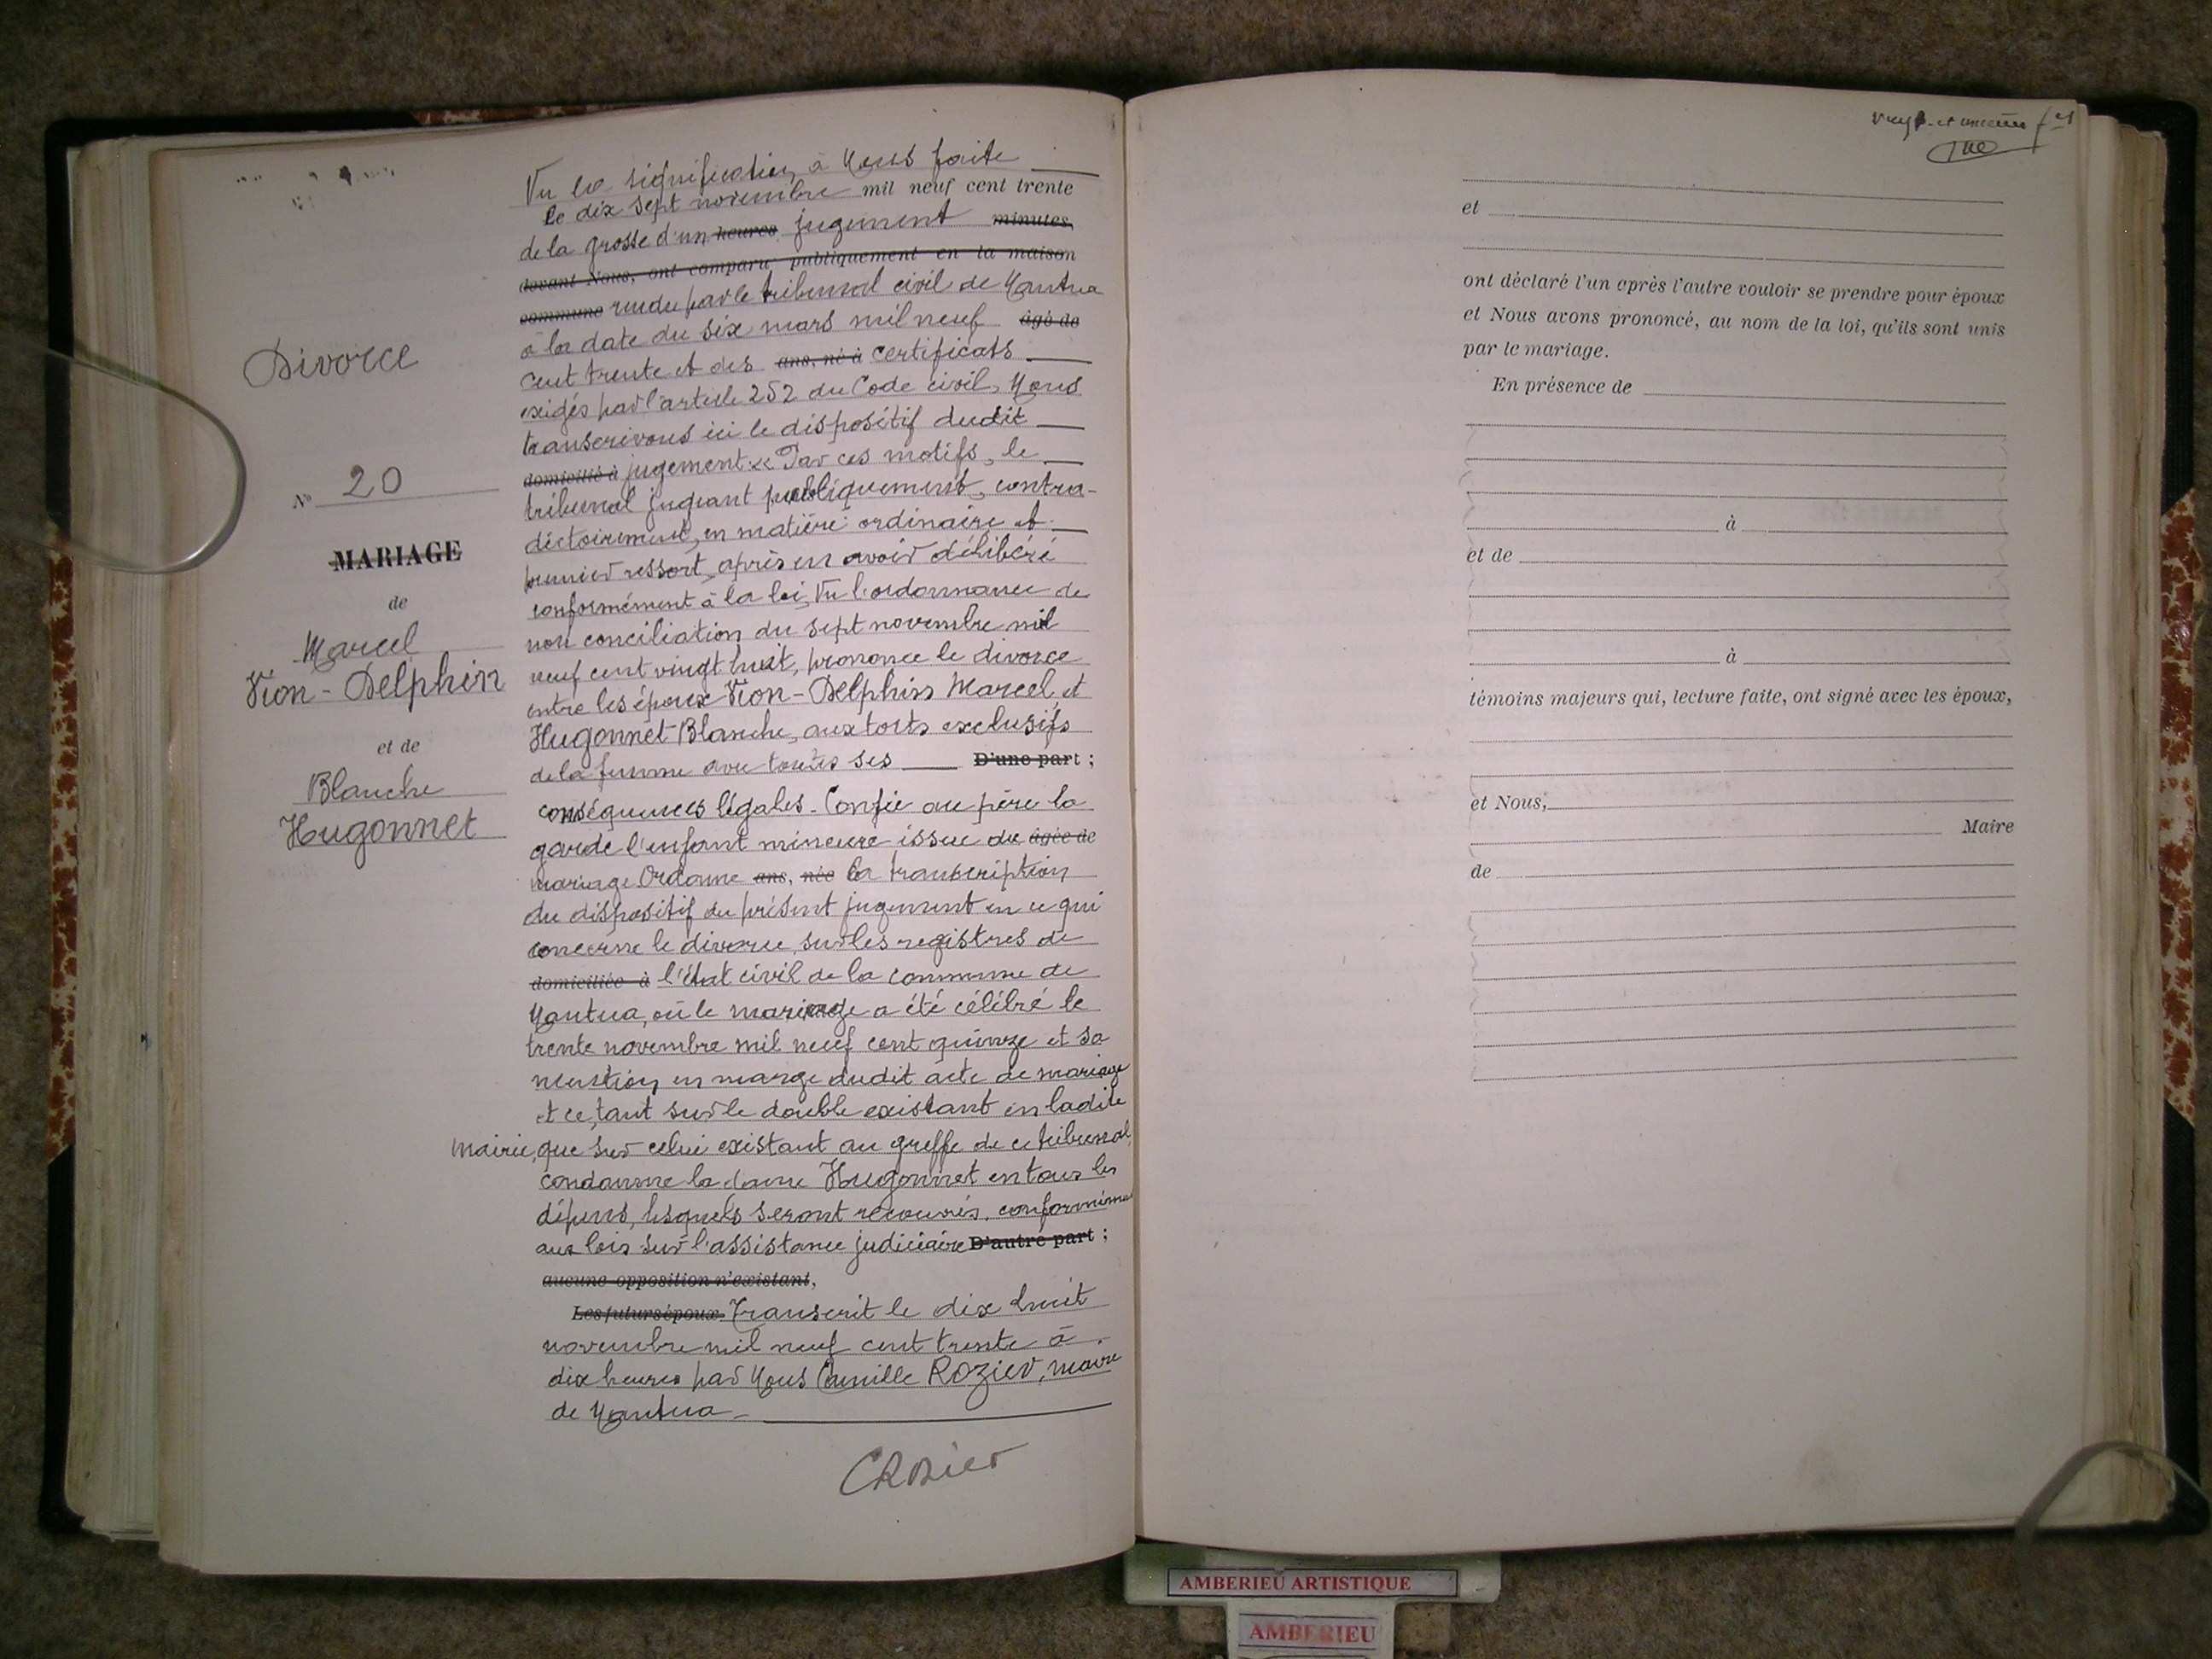 Divorce
N° 20
MARIAGE
de
Marcel
Vion-Delphin
et de
Blanche
Hugonnet
Vu la signification à Nous faite
le dix sept novembre mil neuf cent trente
de la grosse d'un heures jugement minutes,
devant Nous, ont comparu publiquement en la maison
commune rendu par le tribunal civil de Nantua
à la date du six mars mil neuf âgé de
cent trente et des ans, né à certificats
exigés par l'article 252 du Code civil, Nous
transcrivons ici le dispositif dudit
domicilié à jugement « Par ces motifs, le
tribunal jugeant publiquement, contra-
dictoirement, en matière ordinaire et
premier ressort, après en avoir délibéré
conformément à la loi, Vu l'ordonnance de
non conciliation du sept novembre mil
neuf cent vingt huit, prononce le divorce
entre les époux Vion-Delphin Marcel, et
Hugonnet Blanche, aux torts exclusifs
de la femme avec toutes ses D'une part ;
conséquences légales. Confie au père la
garde l'enfant mineure issue du âgée de
mariage. Ordonne ans, née la transcription
du dispositif du présent jugement en ce qui
concerne le divorce, sur les registres de
domiciliée à l'état civil de la commune de
Nantua, où le mariage a été célébré le
trente novembre mil neuf cent quinze et sa
mention en marge dudit acte de mariage
et ce, tant sur le double existant en ladite
mairie, que sur celui existant au greffe de ce tribunal,
condamne la dame Hugonnet en tous les
dépens, lesquels seront recouvrés, conformément
aux lois sur l'assistance judiciaire D'autre part ;
aucune opposition n'existant,
Les futurs époux Transcrit le dix huit
novembre mil neuf cent trente à
dix heures par Nous Camille Rozier, maire
de Nantua
CRozier
vingt et
et
ont déclaré l'un après l'autre vouloir se prendre pour époux
et Nous avons prononcé, au nom de la loi, qu'ils sont unis
par le mariage.
En présence de
à
et de
à
témoins majeurs qui, lecture faite, ont signé avec les époux,
et Nous,
Maire
de
AMBERIEU ARTISTIQUE
AMBERIEU